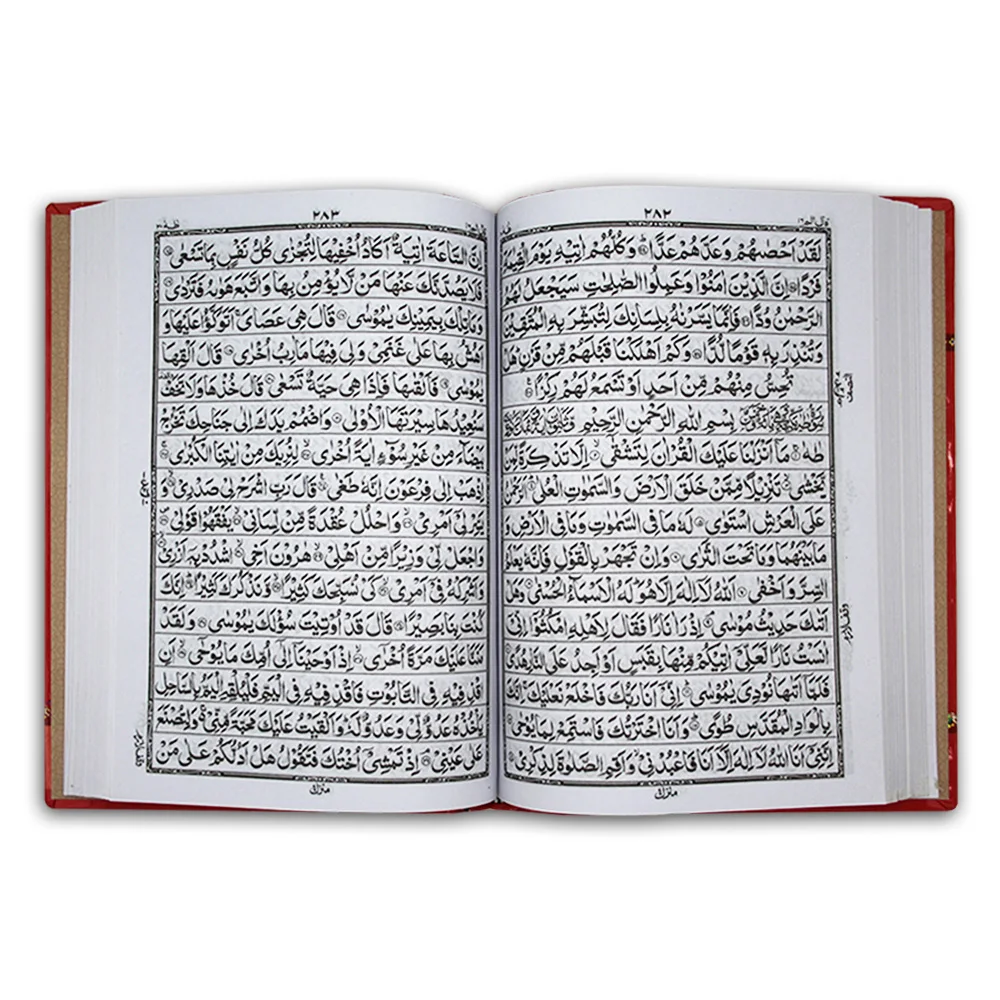 ٢٨٢
لَقَدْ اَحْصٰىهُمْ وَعَدَّهُمْ عَدًّا وَكُلُّهُمْ اٰتِيْهِ يَوْمَ الْقِيٰمَةِ
فَرْدًا اِنَّ الَّذِيْنَ اٰمَنُوْا وَعَمِلُوا الصّٰلِحٰتِ سَيَجْعَلُ لَهُمُ
الرَّحْمٰنُ وُدًّا فَاِنَّمَا يَسَّرْنٰهُ بِلِسَانِكَ لِتُبَشِّرَ بِهِ الْمُتَّقِيْنَ
وَتُنْذِرَ بِهٖ قَوْمًا لُّدًّا وَكَمْ اَهْلَكْنَا قَبْلَهُمْ مِّنْ قَرْنٍ هَلْ
تُحِسُّ مِنْهُمْ مِّنْ اَحَدٍ اَوْ تَسْمَعُ لَهُمْ رِكْزًا
بِسْمِ اللّٰهِ الرَّحْمٰنِ الرَّحِيْمِ
طٰهٰ مَا اَنْزَلْنَا عَلَيْكَ الْقُرْاٰنَ لِتَشْقٰى اِلَّا تَذْكِرَةً لِّمَنْ
يَّخْشٰى تَنْزِيْلًا مِّمَّنْ خَلَقَ الْاَرْضَ وَالسَّمٰوٰتِ الْعُلٰى اَلرَّحْمٰنُ
عَلَى الْعَرْشِ اسْتَوٰى لَهٗ مَا فِى السَّمٰوٰتِ وَمَا فِى الْاَرْضِ وَ
مَا بَيْنَهُمَا وَمَا تَحْتَ الثَّرٰى وَاِنْ تَجْهَرْ بِالْقَوْلِ فَاِنَّهٗ يَعْلَمُ
السِّرَّ وَاَخْفٰى اَللّٰهُ لَا اِلٰهَ اِلَّا هُوَ لَهُ الْاَسْمَاءُ الْحُسْنٰى وَهَلْ
اَتٰىكَ حَدِيْثُ مُوْسٰى اِذْ رَاٰ نَارًا فَقَالَ لِاَهْلِهِ امْكُثُوْا اِنِّى
اٰنَسْتُ نَارًا لَّعَلِّى اٰتِيْكُمْ مِّنْهَا بِقَبَسٍ اَوْ اَجِدُ عَلَى النَّارِ هُدًى
فَلَمَّا اَتٰىهَا نُوْدِىَ يٰمُوْسٰى اِنِّى اَنَا رَبُّكَ فَاخْلَعْ نَعْلَيْكَ اِنَّكَ
بِالْوَادِ الْمُقَدَّسِ طُوًى وَاَنَا اخْتَرْتُكَ فَاسْتَمِعْ لِمَا يُوْحٰى
اِنَّنِى اَنَا اللّٰهُ لَا اِلٰهَ اِلَّا اَنَا فَاعْبُدْنِى وَاَقِمِ الصَّلٰوةَ لِذِكْرِى
منزل
٢٨٣
اِنَّ السَّاعَةَ اٰتِيَةٌ اَكَادُ اُخْفِيْهَا لِتُجْزٰى كُلُّ نَفْسٍ بِمَا تَسْعٰى
فَلَا يَصُدَّنَّكَ عَنْهَا مَنْ لَّا يُؤْمِنُ بِهَا وَاتَّبَعَ هَوٰىهُ فَتَرْدٰى
وَمَا تِلْكَ بِيَمِيْنِكَ يٰمُوْسٰى قَالَ هِىَ عَصَاىَ اَتَوَكَّؤُا عَلَيْهَا وَ
اَهُشُّ بِهَا عَلٰى غَنَمِى وَلِىَ فِيْهَا مَاٰرِبُ اُخْرٰى قَالَ اَلْقِهَا
يٰمُوْسٰى فَاَلْقٰىهَا فَاِذَا هِىَ حَيَّةٌ تَسْعٰى قَالَ خُذْهَا وَلَا تَخَفْ
سَنُعِيْدُهَا سِيْرَتَهَا الْاُوْلٰى وَاضْمُمْ يَدَكَ اِلٰى جَنَاحِكَ تَخْرُجْ
بَيْضَاءَ مِنْ غَيْرِ سُوْءٍ اٰيَةً اُخْرٰى لِنُرِيَكَ مِنْ اٰيٰتِنَا الْكُبْرٰى
اِذْهَبْ اِلٰى فِرْعَوْنَ اِنَّهٗ طَغٰى قَالَ رَبِّ اشْرَحْ لِى صَدْرِى وَ
يَسِّرْ لِى اَمْرِى وَاحْلُلْ عُقْدَةً مِّنْ لِّسَانِى يَفْقَهُوْا قَوْلِى
وَاجْعَلْ لِّى وَزِيْرًا مِّنْ اَهْلِى هٰرُوْنَ اَخِى اشْدُدْ بِهٖ اَزْرِى
وَاَشْرِكْهُ فِى اَمْرِى كَىْ نُسَبِّحَكَ كَثِيْرًا وَّنَذْكُرَكَ كَثِيْرًا اِنَّكَ
كُنْتَ بِنَا بَصِيْرًا قَالَ قَدْ اُوْتِيْتَ سُؤْلَكَ يٰمُوْسٰى وَلَقَدْ
مَنَنَّا عَلَيْكَ مَرَّةً اُخْرٰى اِذْ اَوْحَيْنَا اِلٰى اُمِّكَ مَا يُوْحٰى اَنِ
اقْذِفِيْهِ فِى التَّابُوْتِ فَاقْذِفِيْهِ فِى الْيَمِّ فَلْيُلْقِهِ الْيَمُّ بِالسَّاحِلِ
يَاْخُذْهُ عَدُوٌّ لِّى وَعَدُوٌّ لَّهٗ وَاَلْقَيْتُ عَلَيْكَ مَحَبَّةً مِّنِّى وَلِتُصْنَعَ
عَلٰى عَيْنِى اِذْ تَمْشِى اُخْتُكَ فَتَقُوْلُ هَلْ اَدُلُّكُمْ عَلٰى مَنْ
منزل